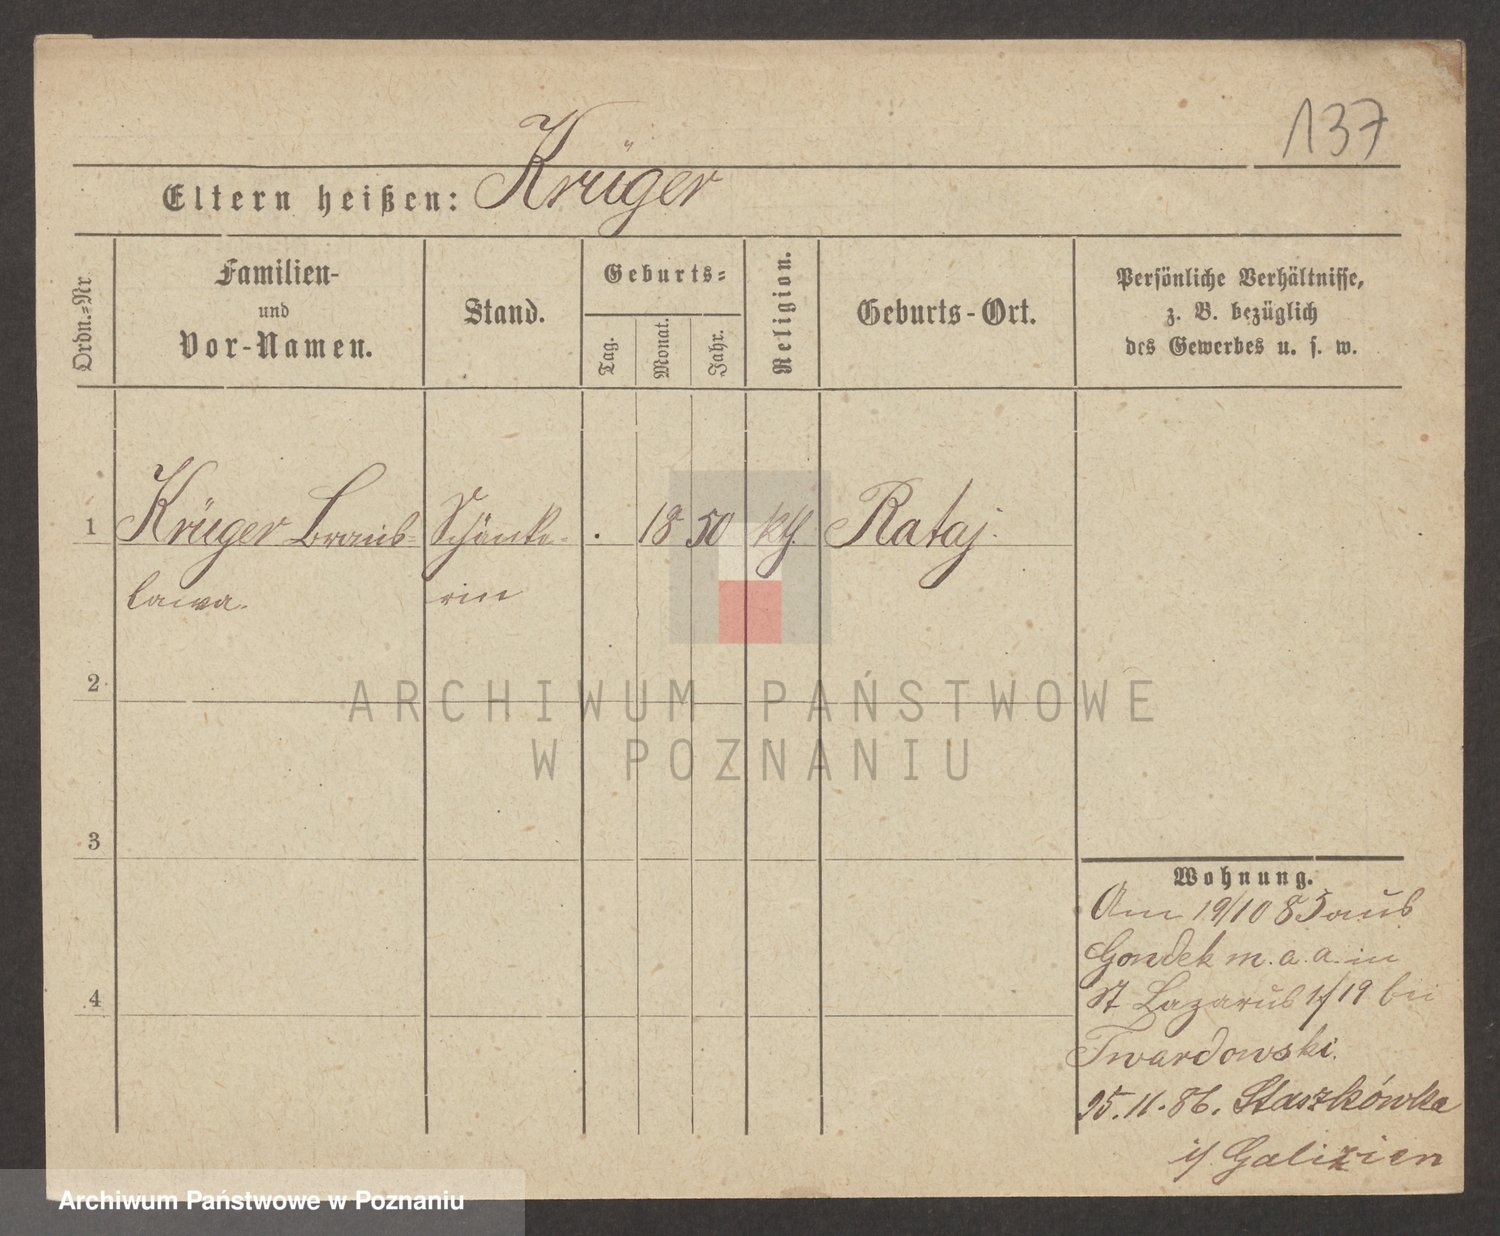 137
Eltern heißen: Krüger
Ordn.=Nr.
Familien-
und
Vor-Namen.
Stand.
Geburts=
Tag.
Monat.
Jahr.
Religion.
Geburts-Ort.
Persönliche Verhältnisse,
z. B. bezüglich
des Gewerbes u. s. w.
1 Krüger Bronis= Schänke- . 18 50 kth Rataj.
lawa. rin
2
3
4
Wohnung.
Am 19/10 85 aus
Gondek m. a. a. in
St Lazarus 19 bei
Twardowski.
25.11.86. Staszkówka
i/ Galizien
ARCHIWUM PAŃSTWOWE
W POZNANIU
Archiwum Państwowe w Poznaniu